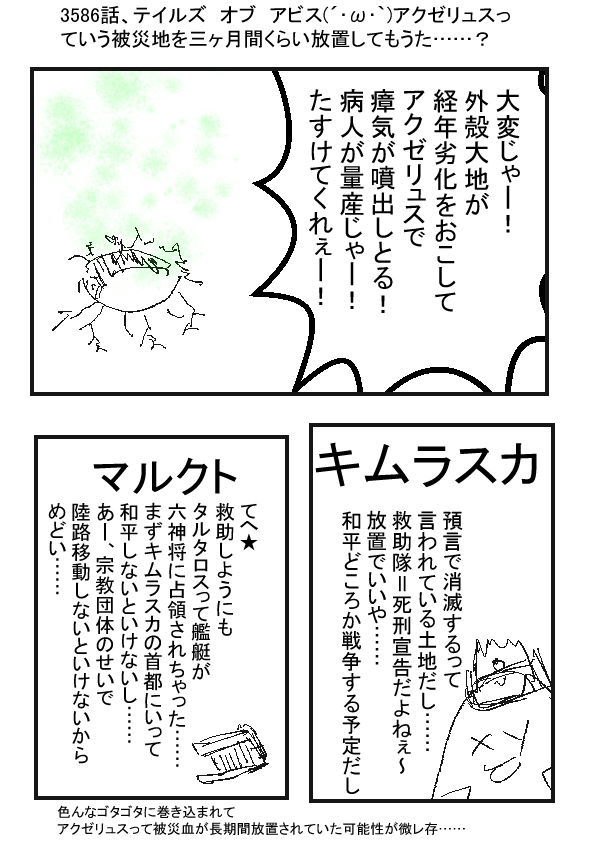 3586話、テイルズ　オブ　アビス(´･ω･`)アクゼリュスっ
ていう被災地を三ヶ月間くらい放置してもうた……？
大変じゃー！
外殻大地が
経年劣化をおこして
アクゼリュスで
瘴気が噴出しとる！
病人が量産じゃー！
たすけてくれぇー！
キムラスカ
預言で消滅するって
言われている土地だし……
救助隊＝死刑宣告だよねぇ～
放置でいいや……
和平どころか戦争する予定だし
マルクト
てへ★
救助しようにも
タルタロスって艦艇が
六神将に占領されちゃった……
まずキムラスカの首都にいって
和平しないといけないし……
あー、宗教団体のせいで
陸路移動しないといけないから
めどい……
色んなゴタゴタに巻き込まれて
アクゼリュスって被災血が長期間放置されていた可能性が微レ存……